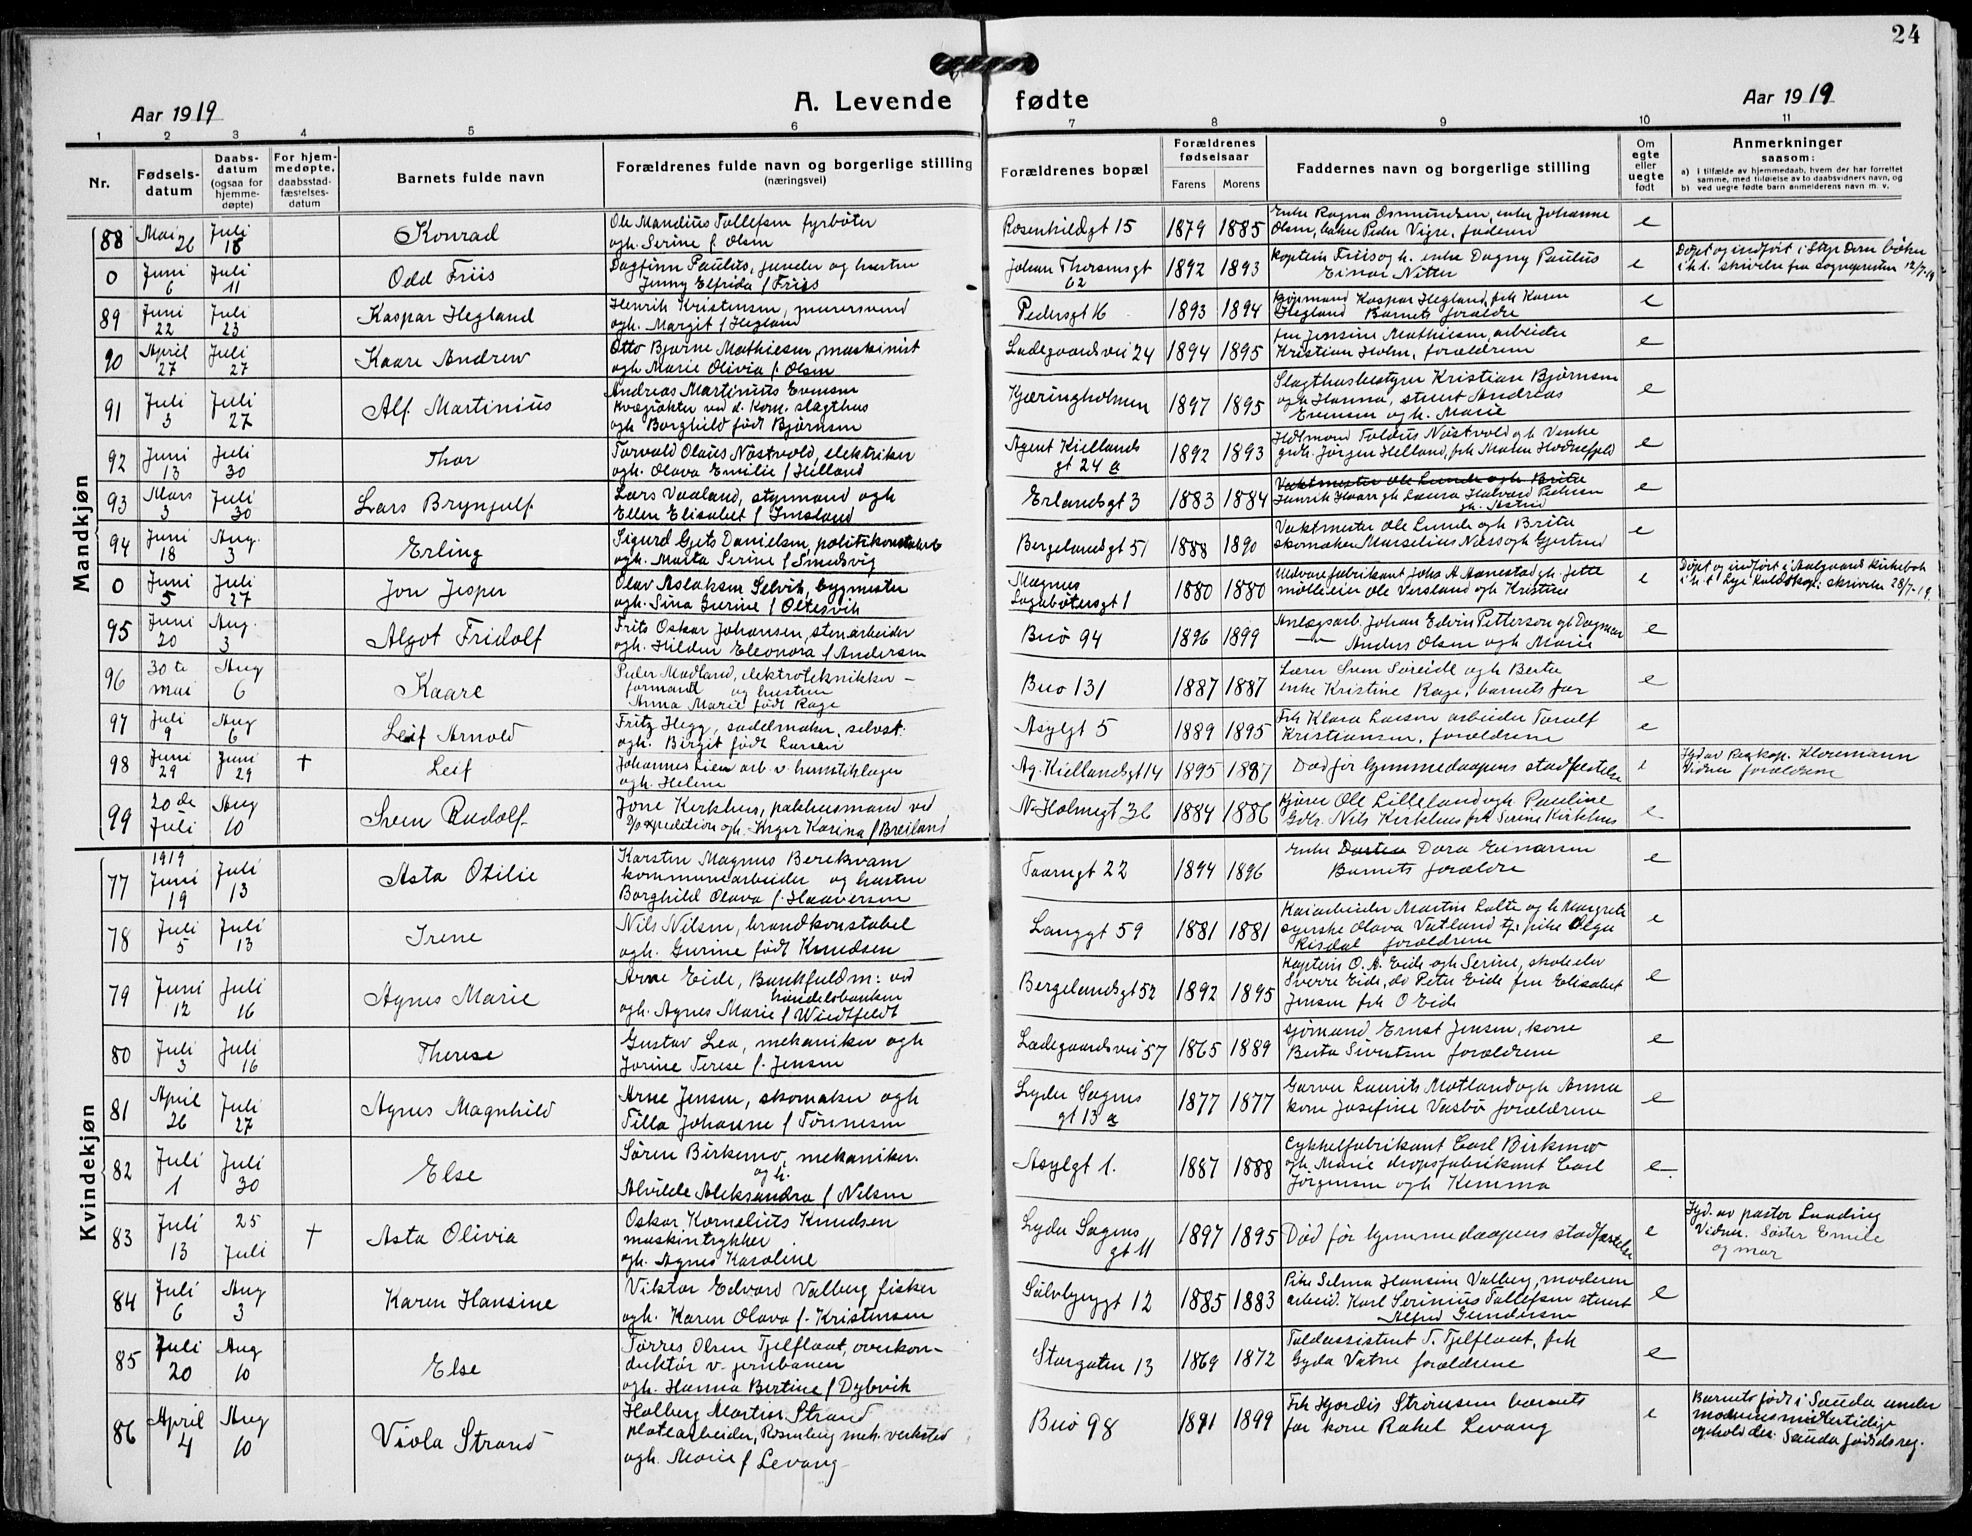 24
Aar 1919
A. Levende fødte
Aar 1919
1 2 3 4 5 6 7 8 9 10 11
Nr.
Fødsels-
datum
Daabs-
datum
(ogsaa for
hjemme-
døpte)
For hjem-
medøpte,
daabsstad-
fæstelses-
datum
Barnets fulde navn
Forældrenes fulde navn og borgerlige stilling
(næringsvei)
Forældrenes bopæl
Forældrenes
fødselsaar
Farens Morens
Faddernes navn og borgerlige stilling
Om
egte
eller
uegte
født
Anmerkninger
saasom:
a) i tilfælde av hjemmedaab, hvem der har forrettet
samme, med tilføielse av to daabsvidners navn, og
b) ved uegte fødte barn anmelderens navn m. v.
Mandkjøn
88 Mai 26 Juli 18 Konrad
Ole Mandius Tollefsen fyrbøter
ogh. Serine f Olsen
Rosenkildegt 15 1879 1885
Enke Ragna Osmundsen, enke Johanne
Olsen, baker Peder Vigre, faderen
e
0 Juni 6 Juli 11 Odd Friis
Dagfinn Paulus, juveler og hustru
Jenny Elfrida f Friis
Johan Thorsensgt
62 1892 1893
Kaptein Friis og h. enke Dagny Paulus
Einar Nitter
e
Døpt og indført i Skp. Dom. bøker
i h. t. skrivelse fra sognepresten 12/7-19
89 Juni 22 Juli 23 Kaspar Hegland
Henrik Kristensen, murersvend
ogh. Margit f Hegland
Pedersgt 16 1893 1894
Kjøpmand Kaspar Hegland, frk Karen
Hegland Barnets forældre
e
90 April 27 Juli 27 Kaare Andrew
Otto Bjarne Mathiesen, maskinist
ogh Marie Olivia f. Olsen
Ladegaardsvei 24 1894 1895
fru Jensine Mathiesen, arbeider
Kristian Holm, forældrene
e
91 Juli 3 Juli 27 Alf Martinius
Andreas Martinius Evensen
kvægrøkter ved d. kom. slagthus
ogh Borghild født Bjørnsen
Kjæringholmen 1897 1895
Slagthusbestyrer Kristian Bjørnsen
ogh Hanna, stuert Andreas
Evensen og h. Marie
e
92 Juni 13 Juli 30 Thor
Torvald Olaus Nøstvold, elektriker
ogh. Olava Emilie f Helland
Agent Kiellands
gt 24 a 1892 1893
Toldus Nøstvold og h Venke
grdr. Jørgen Helland, frk Malen Hodnefjeld
e
93 Mars 3 Juli 30 Lars Brynjulf
Lars Vaaland, styrmand ogh
Ellen Elisabet f Imsland
Erlandsgt 3 1883 1884
Vaktmester Ole Lunde ogh Brita
Henrik Haar gh Laura Halvard Pedersen
gh. Astrid
e
94 Juni 18 Aug. 3 Erling
Sigurd Gjets Danielsen, politikonstabel
ogh. Marta Serine f Smedsvig
Bergelandsgt 51 1888 1890
Vaktmester Ole Lunde ogh Brita
skomaker Marselius Næss ogh Gjertrud
e
0 Juni 5 Juli 27 Jon Jesper
Olav Aslaksen Selvik, bygmester
ogh. Sina Gurine f Oltesvik
Magnus
Lagabøtersgt 1 1880 1880
Uldvarefabrikant Johs A Aanestad gh. Jette
møllieier Ole Versland ogh Kristine
e
Døpt og indført i Aalgaard Kirkebok
i h. t. Lye kaldskap. skrivelse 28/7-19.
95 Juni 20 Aug. 3 Algot Fridolf
Frits Oskar Johansen, stenarbeider
ogh. Hildur Eleonora f Andersen
Buø 94 1896 1899
Anlegsarb. Johan Edvin Pettersson gh Dagmar
Anders Olsen og h Marie
e
96 30te mai Aug 6 Kaare
Peder Madland, elektrotekniker-
formand og hustru
Anna Marie født Rage
Buø 131 1887 1887
Lærer Sven Søreide ogh Berta
enke Kristine Rage, barnets far
e
97 Juli 9 Aug 6 Leif Arnold
Fritz Hegg, sadelmaker, selvst.
ogh. Birgit født Larsen
Asylgt 5 1889 1895
Frk Klara Larsen arbeider Toralf
Kristiansen, forældrene
e
98 Juni 29 Juni 29 † Leif
Johannes Lien arb. v.
ogh. Helene
Ag. Kiellandsgt 14 1895 1887
Død før hjemmedaapens stadfestelse
e
Hjd av Reskap. Kloremann
Vidner forældrene
99 20de Juli Aug 10 Svein Rudolf
Jone Kirkhus, pakhusmand ved
D/s expedition ogh. Inger Karina f Breiland
N. Holmegt 36 1884 1886
kjører Ole Lilleland ogh. Pauline
Gdbr. Nils Kirkhus frk Serine Kirkhus
e
Kvindekjøn
77 1919 Juni 19 Juli 13 Asta Otilie
Karsten Magnus Berekvam
kommunearbeider og hustru
Borghild Olava f. Haaversen
Taarngt 22 1894 1896
Enke Dora Einarsen
Barnets forældre
e
78 Juli 5 Juli 13 Irene
Nils Nilsen, brandkonstabel
ogh. Gurine født Knudsen
Langgt 59 1881 1881
Kaiarbeider Martin Salte og h Margrete
syerske Olava Veitland tj. pike Olga
Risdal forældrene
e
79 Juni 12 Juli 16 Agnes Marie
Arne Eide, Bankfuldm: ved
handelsbanken
ogh. Agnes Marie f Wiedtfeldt
Bergelandsgt 52 1892 1895
Kaptein O. A. Eide ogh Serine, skoleelev
Sverre Eide, do Peter Eide fru Elisabet
Jensen frk O Eide
e
80 Juli 3 Juli 16 Therese
Gustav Lea, mekaniker ogh
Jorine Terese f. Jensen
Ladegaardsvei 57 1865 1889
sjømand Ernst Jensen, kone
Berta Sivertsen forældrene
e
81 April 26 Juli 27 Agnes Magnhild
Arne Jensen, skomaker ogh
Tilla Johanne f Tønnesen
Lyder Sagens
gt 13 a 1877 1877
Garver Laurits Motland ogh Anna
kone Josefine Vasbø forældrene
e
82 Juli 1 Juli 30 Else
Søren Birkemo, mekaniker.
og h.
Alvilde Aleksandra f Nilsen
Asylgt 1. 1887 1888
Cykkelfabrikant Carl Birkemo
gh. Marie dropsfabrikant Carl
Jørgensen ogh Kemma
e
83 Juli 13 25 Juli † Asta Olivia
Oskar Kornelius Knudsen
maskintrykker
ogh. Agnes Karoline
Lyder Sagens
gt 11 1897 1895
Død før hjemmedaapens stadfæstelse
e
Hjd. av pastor Lunding
Vidner. Søster Emilie
og mor
84 Juli 6 Aug 3 Karen Hansine
Viktor Edvard Valberg fisker
ogh. Karen Olava f. Kristensen
Sølvbergt 12 1885 1883
Pike Selma Hansine Valberg, moderen
arbeid. Karl Serinius Tollefsen stuert
Alfred Gundersen
e
85 Juli 20 Aug 10 Else
Tørres Olsen Tjelflaat, overkon-
duktør v. jernbanen
ogh. Hanna Bertine f Dybvik
Storgaten 13 1869 1872
Toldassistent T. Tjelflaat, frk
Gyda Vatne forældrene
e
86 April 4 Aug 10 Viola Strand
Holberg Martin Strand
platearbeider, Rosenberg mek. verksted
ogh. Marie f Levang
Buø 98 1891 1899
Frk Hjordis Strømsen barnets
far kone Rakel Levang
e
Barnet født i Sauda under
moderens midlertidige
ophold der. Sauda fødselsreg.